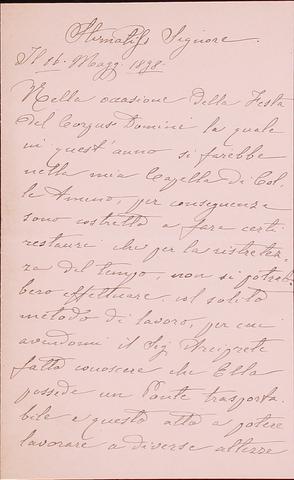 Stimatiss Signore.
Il 16. Magg. 1898.
Nella occasione della Festa
del Corpus Domini la quale
in quest'anno si farebbe
nella mia Capella di Col-
le Ameno, per conseguenza
sono costretto a fare certi
restauri che per la ristretez-
za del tempo, non si potreb-
bero effettuare col solito
metodo di lavoro, per cui
avendomi il Sig. Arciprete
fatto conoscere che Ella
possede un Ponte trasporta-
bile e questo atto a potere
lavorare a diverse altezze